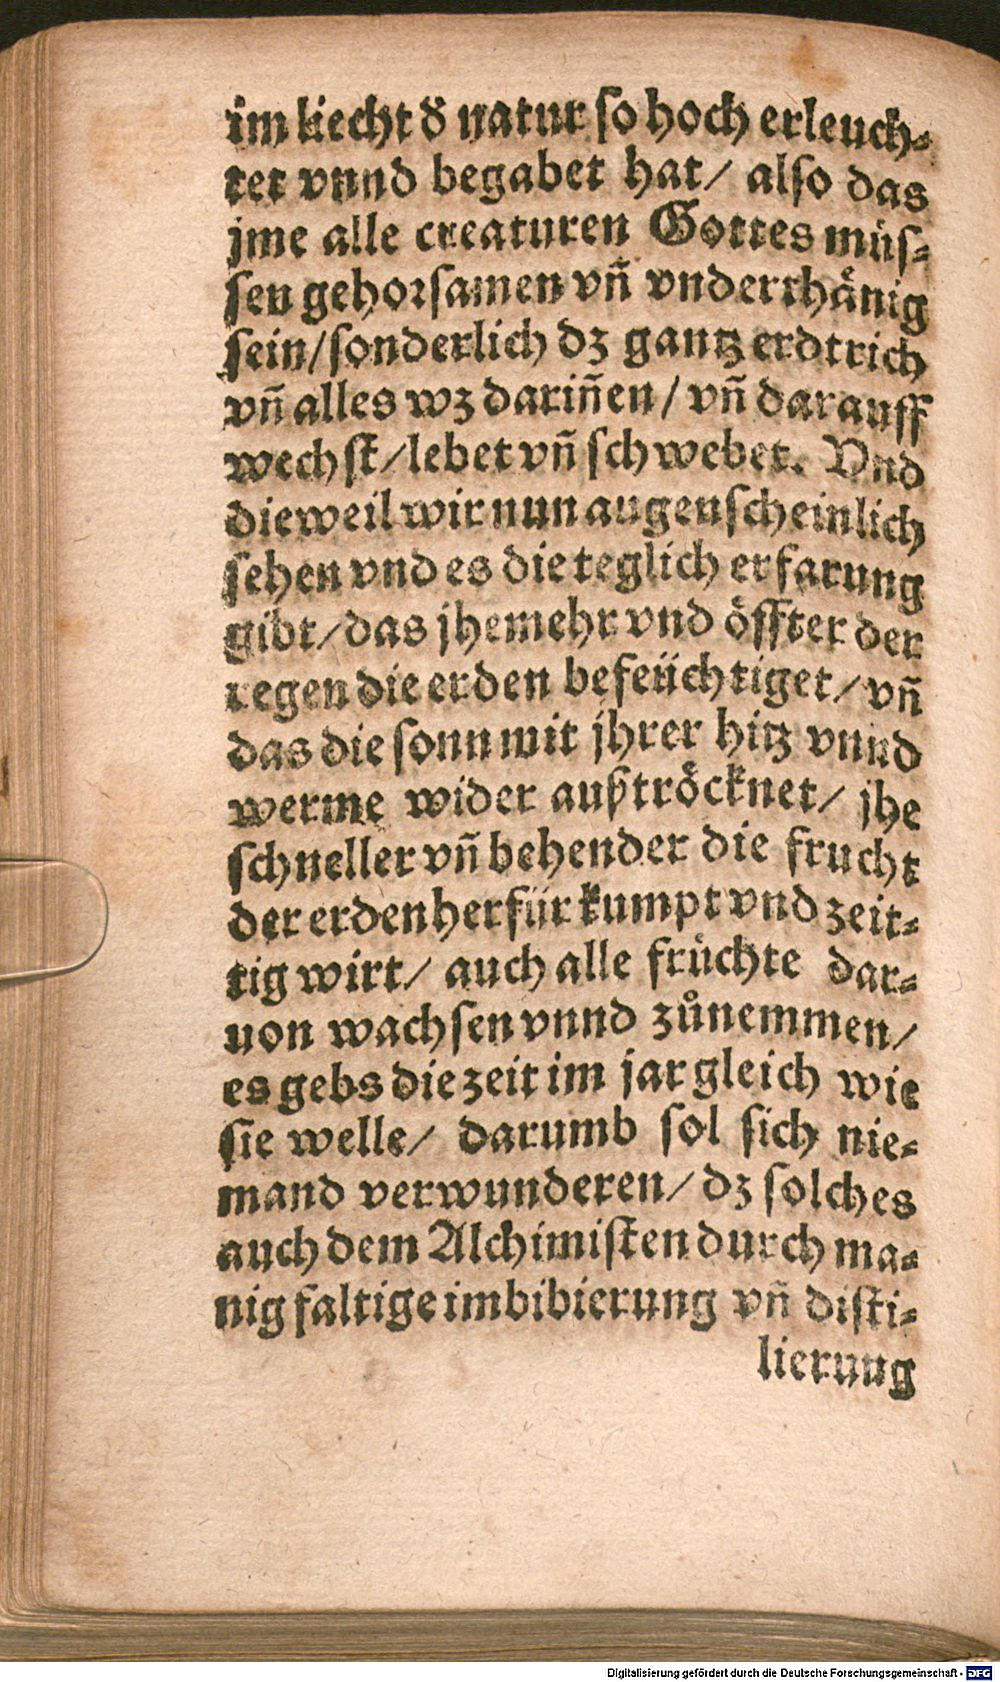 im liecht d̕ natur so hoch erleuch⸗
tet vnnd begabet hat/ also das
jme alle creaturen Gottes müs⸗
sen gehorsamen vñ vnderthänig
sein/sonderlich dz gantz erdtrich
vñ alles wz dariñen/ vñ darauff
wechst/lebet vñ schwebet. Vnd
dieweil wir nun augenscheinlich
sehen vnd es die teglich erfarung
gibt/das jhemehr vnd öffter der
regen die erden befeüchtiget/ vñ
das die sonn mit jhrer hitz vnnd
werme wider außtröcknet/ jhe
schneller vñ behender die frucht
der erden herfür kumpt vnd zeit⸗
tig wirt/ auch alle früchte dar⸗
uon wachsen vnnd zůnemmen/
es gebs die zeit im jar gleich wie
sie welle/ darumb sol sich nie⸗
mand verwunderen/ dz solches
auch dem Alchimisten durch ma⸗
nigfaltige imbibierung vñ disti⸗
lierung
Digitalisierung gefördert durch die Deutsche Forschungsgemeinschaft - DFG